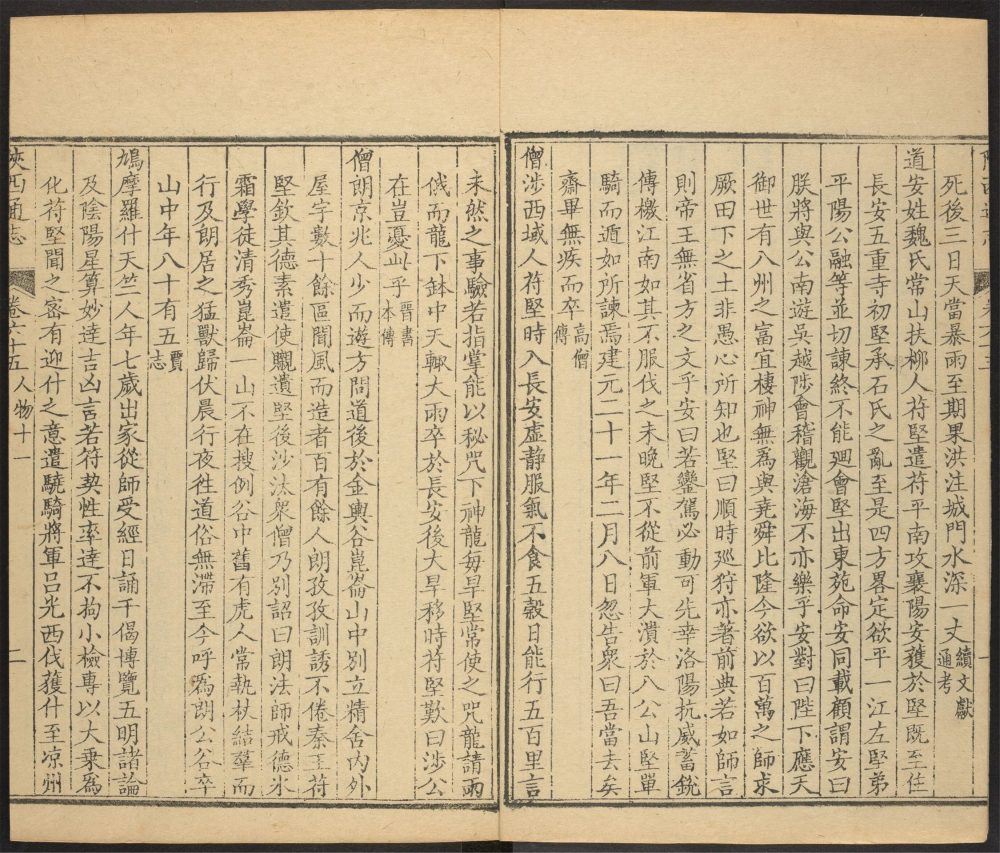 死後三日天當暴雨至期果洪注城門水深一丈續文獻通考
道安姓魏氏常山扶柳人苻堅遣苻平南攻襄陽安獲於堅既至住
長安五重寺初堅承石氏之亂至是四方畧定欲平一江左堅弟
平陽公融等並切諫終不能廻會堅出東苑命安同載顧謂安曰
朕將與公南遊吳越陟會稽觀滄海不亦樂乎安對曰陛下應天
御世有八州之富宜棲神無爲與堯舜比隆今欲以百萬之師求
厥田下之土非愚心所知也堅曰順時廵狩亦著前典若如師言
則帝王無省方之文乎安曰若鑾駕必動可先幸洛陽抗威蓄銳
傳檄江南如其不服伐之未晚堅不從前軍大潰於八公山堅單
騎而遁如所諫焉建元二十一年二月八日忽告衆曰吾當去矣
齋畢無疾而卒高僧傳
僧涉西域人苻堅時入長安虛静服氣不食五穀日能行五百里言
未然之事驗若指掌能以秘咒下神龍每旱堅常使之咒龍請雨
俄而龍下鉢中天輙大雨卒於長安後大旱移時苻堅歎曰涉公
在豈憂此乎晉書本傳
僧朗京兆人少而遊方問道後於金輿谷崑崙山中别立精舍内外
屋宇數十餘區聞風而造者百有餘人朗孜孜訓誘不倦秦主苻
堅欽其德素遣使䞋遺堅後沙汰衆僧乃别詔曰朗法師戒德氷
霜學徒清秀崑崙一山不在搜例谷中舊有虎人常執杖結羣而
行及朗居之猛獸歸伏晨行夜徃道俗無滯至今呼爲朗公谷卒
山中年八十有五賈志
鳩摩羅什天竺人年七歲出家從師受經日誦千偈博覽五明諸論
及陰陽星算妙達吉凶言若符契性率達不拘小檢專以大乗爲
化苻堅聞之密有迎什之意遣驍騎將軍吕光西伐獲什至凉州
陜西通志
卷六十五人物十一
二